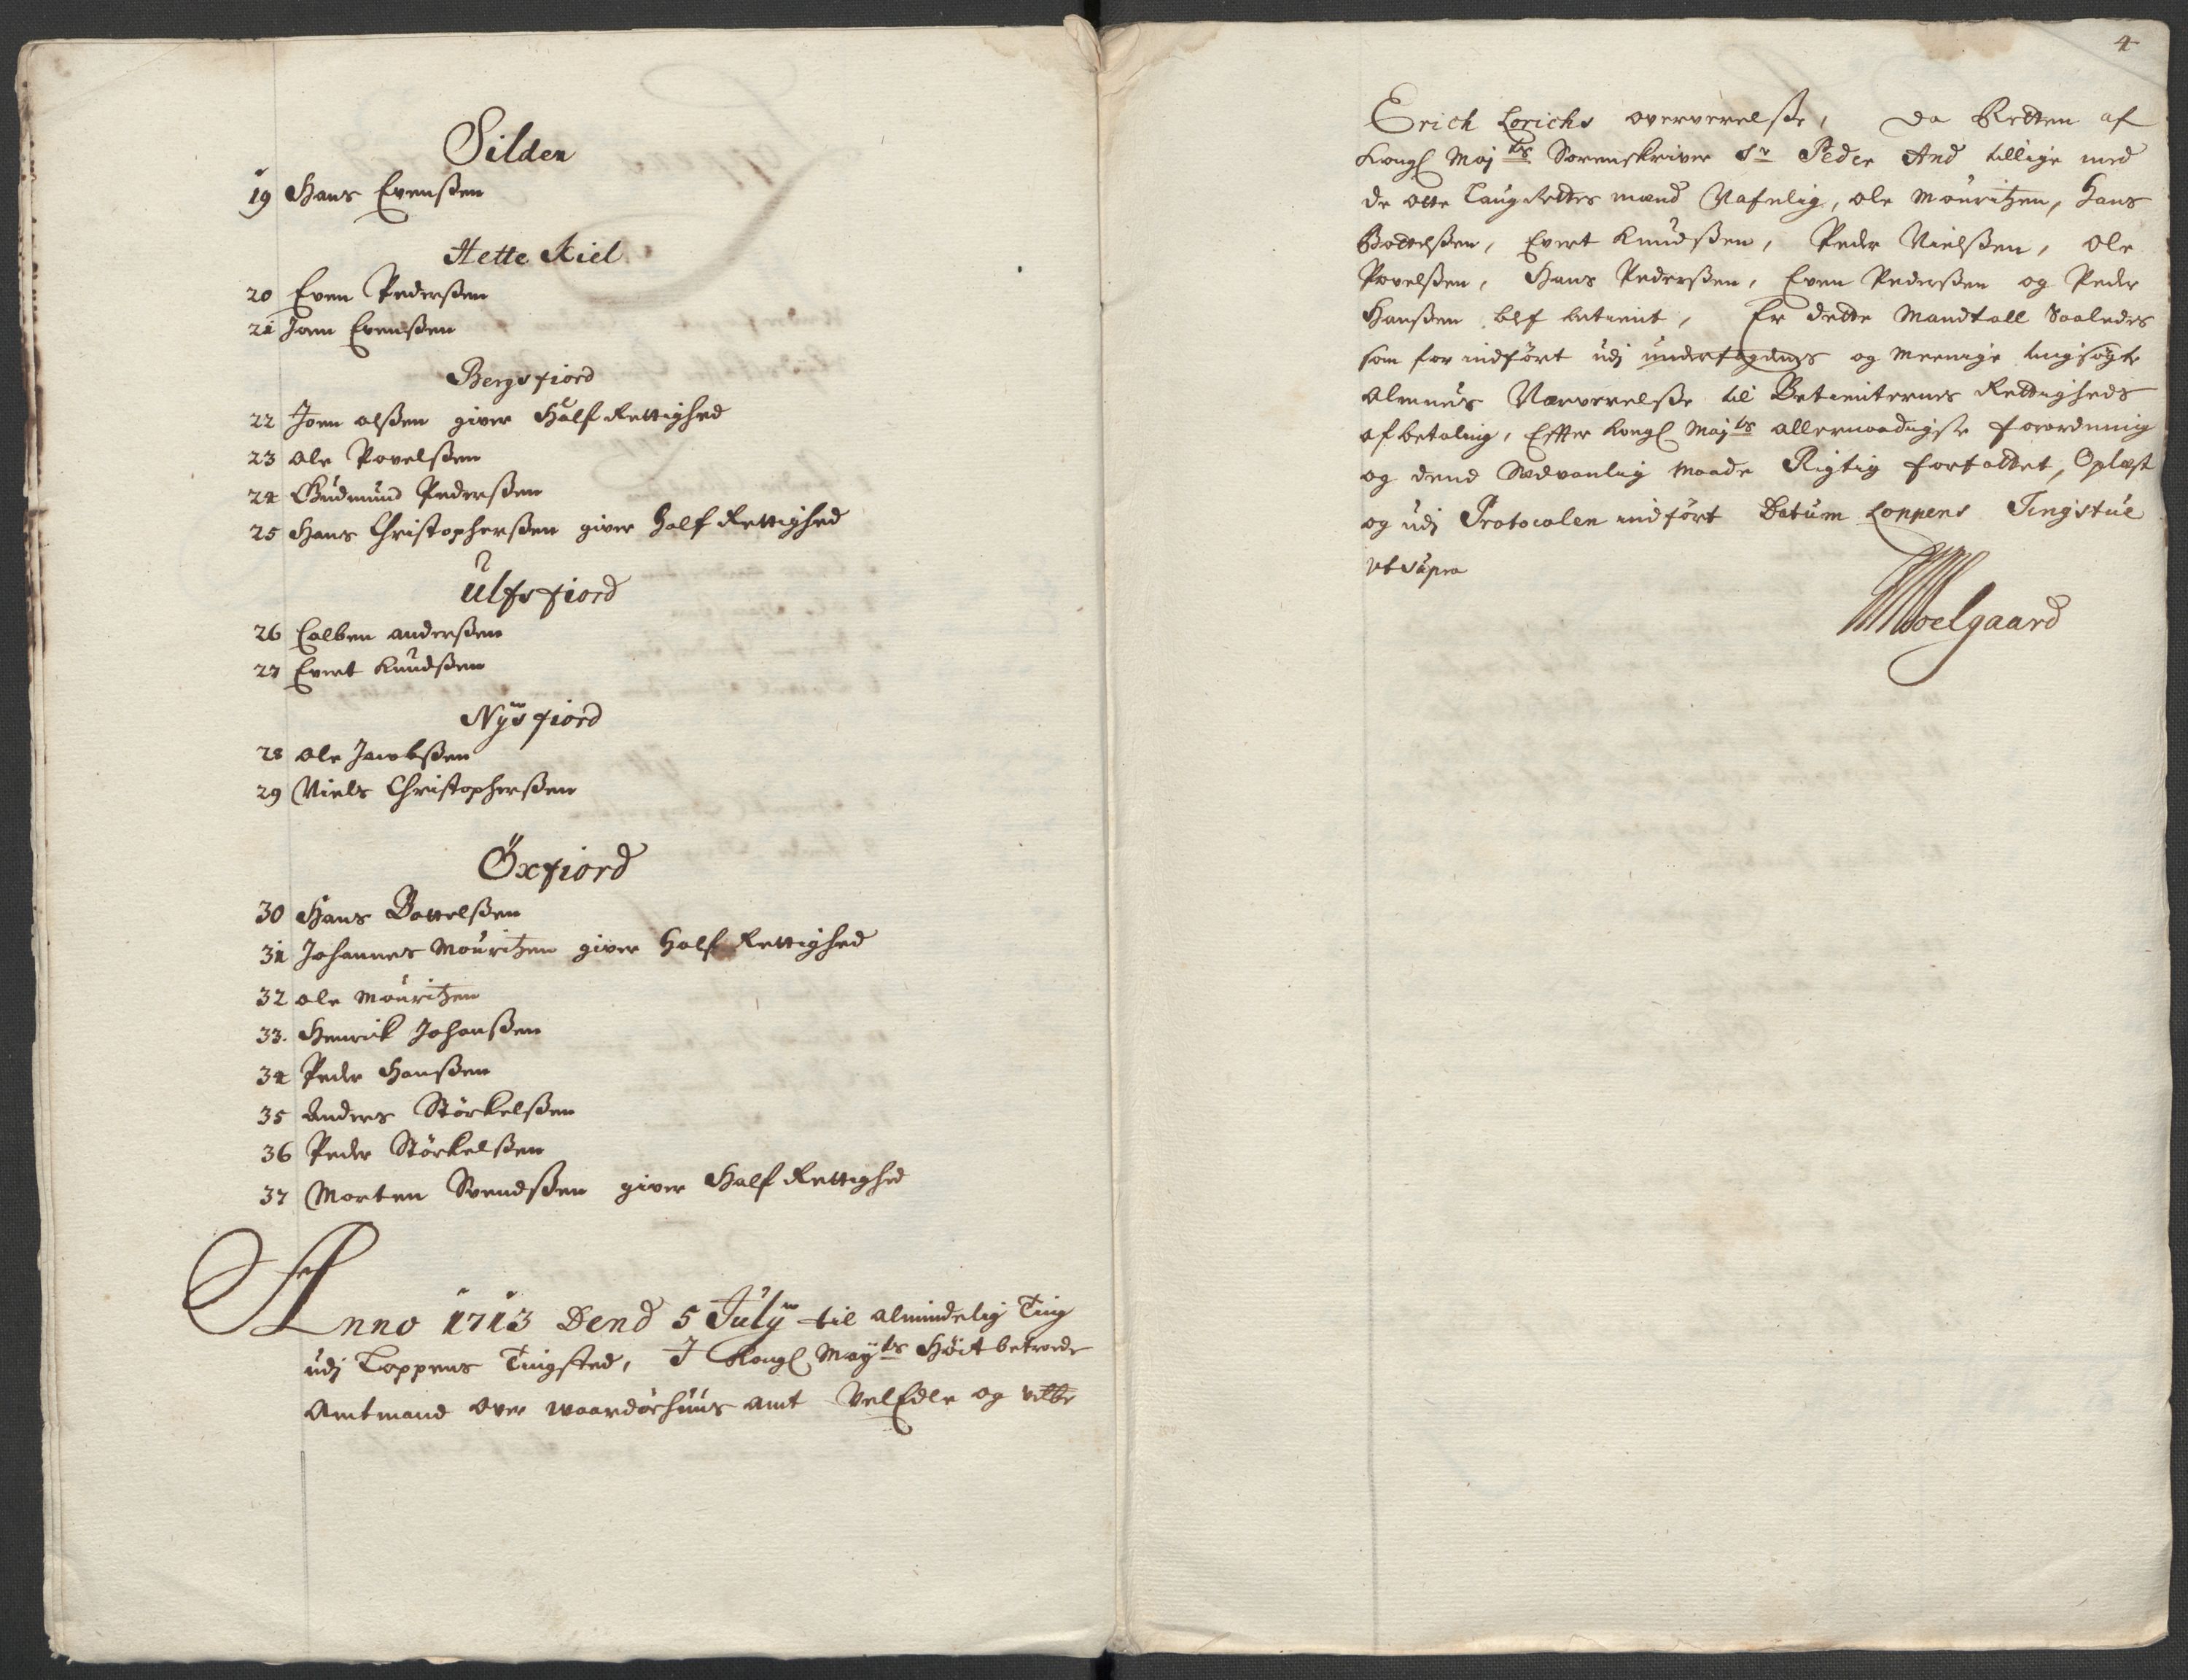 Silden
19 Hans Evenßen
Hette Kiel
20 Even Pederßen
21 Joen Evenßen
Bergsfiord
22 Joen olßen giver Half Rettighed
23 Ole Povelßen
24 Gudmund Pederßen
25 Hans Christopherßen giver Half Rettighed
Ulfsfiord
26 Colben anderßen
27 Evert Knudßen
Nÿsfiord
28 Ole Jacobßen
29 Niels Christopherßen
Öxfiord
30 Hans Bottelßen
31 Johannes Mouritzen giver Half Rettighed
32 ole Mouritzen
33. Henrick Johanßen
34 Peder Hanßen
35 Anders Störkelßen
36 Peder Störkelßen
37 Morten Svendßen giver Half Rettighed
Anno 1713 Dend 5 Julÿ til almindelig Ting
udj Loppens Tingsted, J Kongl Mayts Höit betroede
Amtmand over waardöehuus amt VelEdle og
4
Erich Lorichs oververelße, da Retten af
Kongl Majts Sorenskriver Sr Peder And tillige med
de otte Laug Rettes mænd Nafnlig, ole Mouritzen, Hans
Bottelßen, Evert Knudßen, Peder Nielßen, Ole
Povelßen, Hans Pederßen, Even Pederßen og Peder
Hanßen blef betient, Er dette Mandtall Saaledes
som for indfört udj underfogdens og Meenige tingsögte
Almues Nærverelße til Betienternes Rettigheds
afbetaling, Effter Kongl Majts allernaadigste forordning
og dend Sædvanlig maade Rigtig forfattet, Oplæst
og udj Protocolen indfört Datum Loppens Tingstue
ut supra
Moelgaard